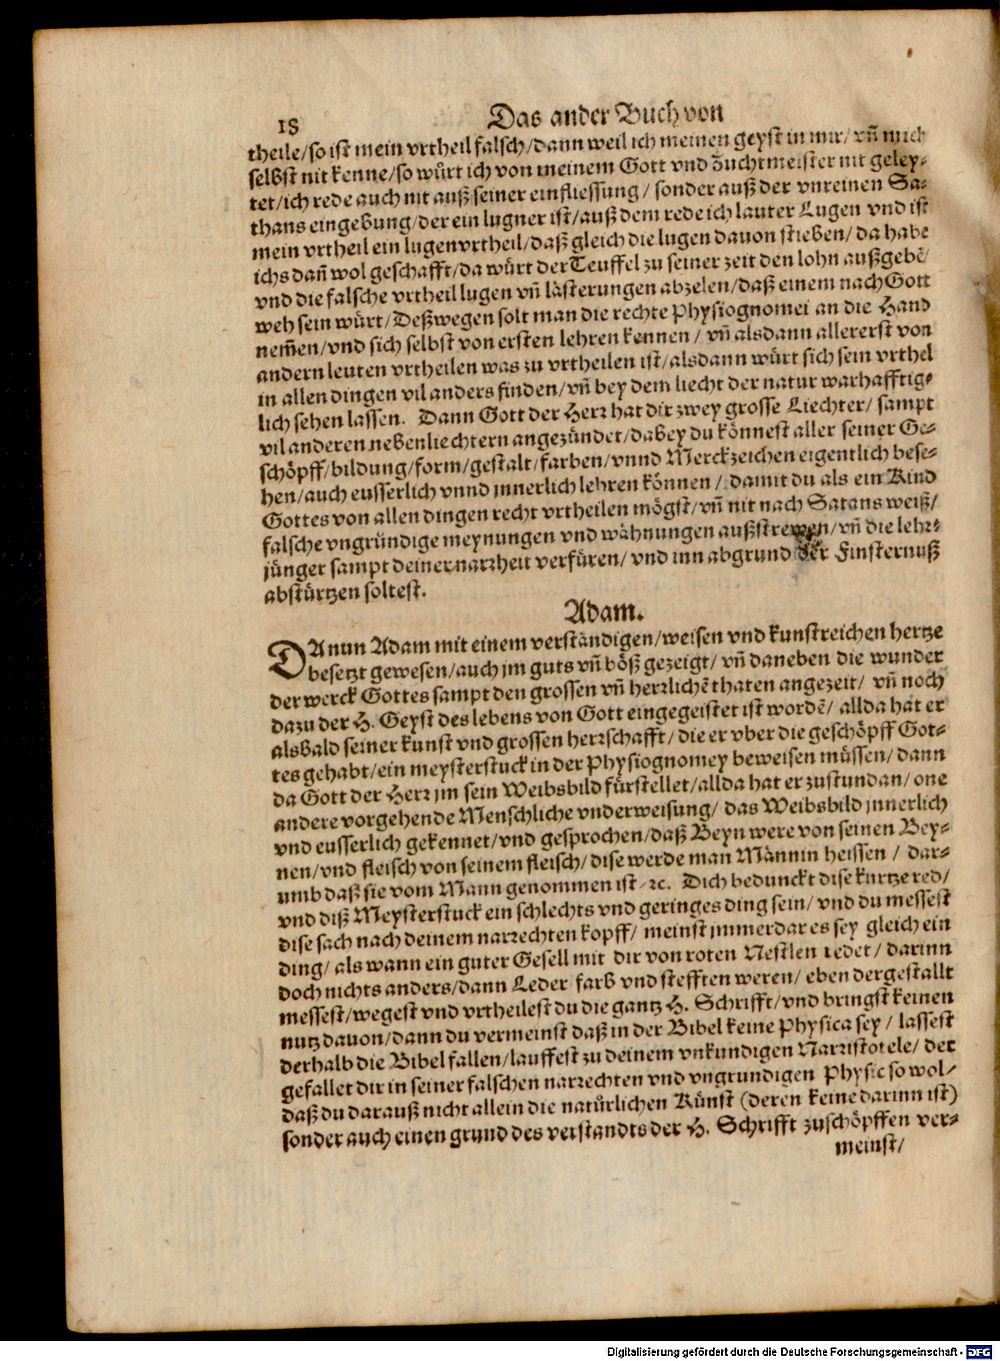 18
Das ander Buch von
theile/so ist mein vrtheil falsch/dann weil ich meinen geyst in mir/ vñ mich
selbst nit kenne/so würt ich von meinem Gott vnd Zuchtmeister nit geley-
tet/ich rede auch nit auß seiner einfliessung/ sonder auß der vnreinen Sa-
thans eingebung/der ein lugner ist/auß dem rede ich lauter Lugen vnd ist
mein vrtheil ein lugenvrtheil/daß gleich die lugen dauon stieben/ da habe
ichs dañ wol geschafft/da würt der Teuffel zu seiner zeit den lohn außgebē/
vnd die falsche vrtheil lugen vñ lästerungen abzelen/daß einem nach Gott
weh sein würt/ Deßwegen solt man die rechte Physiognomei an die Hand
nem̃en/vnd sich selbst von ersten lehren kennen/ vñ alsdann allererst von
andern leuten vrtheilen was zu vrtheilen ist/alsdann würt sich sein vrthel
in allen dingen vil anders finden/vñ bey dem liecht der natur warhafftig-
lich sehen lassen. Dann Gott der Herr hat dir zwey grosse Liechter/ sampt
vil anderen nebenliechtern angezündet/dabey du könnest aller seiner Ge-
schöpff/bildung/form/gestalt/farben/vnnd Merckzeichen eigentlich bese-
hen/auch eusserlich vnnd jnnerlich lehren können/ damit du als ein Kind
Gottes von allen dingen recht vrtheilen mögst/vñ nit nach Satans weiß/
falsche vngründige meynungen vnd wähnungen außstrewen/vñ die lehr-
jünger sampt deiner narrheit verfüren/ vnd inn abgrund der Finsternuß
abstürtzen soltest.
Adam.
DA nun Adam mit einem verständigen/weisen vnd kunstreichen hertze
besetzt gewesen/auch jm guts vñ böß gezeigt/ vñ daneben die wunder
der werck Gottes sampt den grossen vñ herrlichē thaten angezeit/ vñ noch
dazu der H. Geyst des lebens von Gott eingegeistet ist wordē/ allda hat er
alsbald seiner kunst vnd grossen herrschafft/ die er vber die geschöpff Got-
tes gehabt/ein meysterstuck in der Physiognomey beweisen müssen/ dann
da Gott der Herr jm sein Weibsbild fürstellet/allda hat er zustundan/ one
andere vorgehende Menschliche vnderweisung/ das Weibsbild jnnerlich
vnd eusserlich gekennet/vnd gesprochen/daß Beyn were von seinen Bey-
nen/vnd fleisch von seinem fleisch/ dise werde man Männin heissen/ dar-
umb daß sie vom Mann genommen ist/ ꝛc. Dich bedunckt dise kurtze red/
vnd diß Meysterstuck ein schlechts vnd geringes ding sein/ vnd du messest
dise sach nach deinem narrechten kopff/ meinst jmmerdar es sey gleich ein
ding/ als wann ein guter Gesell mit dir von roten Nestlen redet/ darinn
doch nichts anders/dann Leder/ farb vnd stefften weren/ eben dergestallt
messest/wegest vnd vrtheilest du die gantz H. Schrifft/vnd bringst keinen
nutz dauon/dann du vermeinst daß in der Bibel keine Physica sey/ lassest
derhalb die Bibel fallen/lauffest zu deinem vnkundigen Narristotele/ der
gefallet dir in seiner falschen narrechten vnd vngrundigen Physic so wol/
daß du darauß nicht allein die natůrlichen Künst (deren keine darinn ist)
sonder auch einen grund des verstandts der H. Schrifft zuschöpffen ver-
meinst/
Digitalisierung gefördert durch die Deutsche Forschungsgemeinschaft - DFG